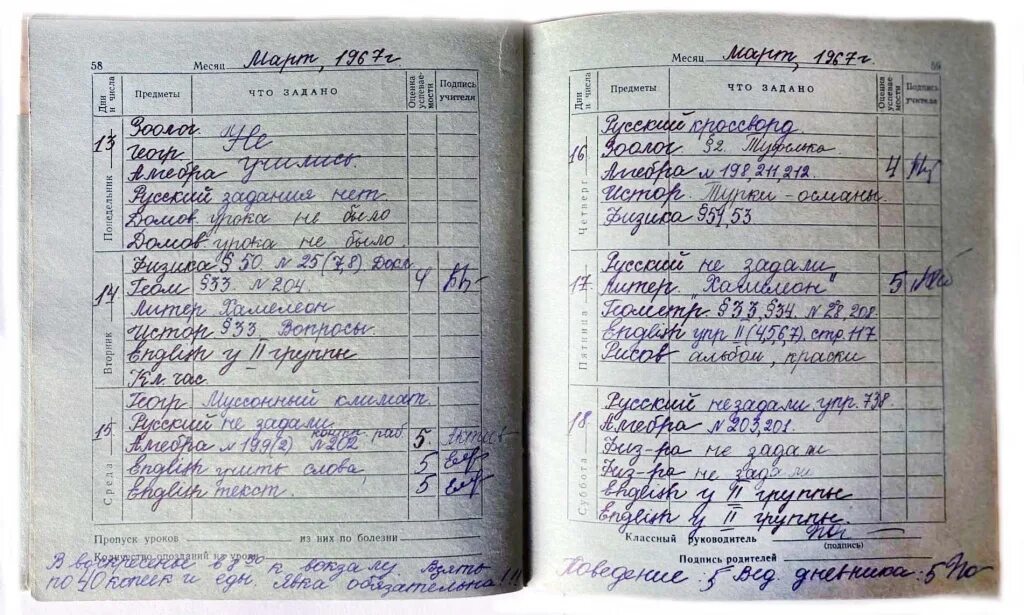 58 Месяц Март, 1967г
Дни и числа Предметы ЧТО ЗАДАНО Оценка успеваемости Подпись учителя
Понедельник 13
Зоолог. Не
Геогр учились.
Алгебра
Русский задания нет
Домов. урока не было
Домов урока не было.
Вторник 14
Физика § 50. № 25 (7,8) 4
Геом §33. № 204.
Литер Хамелеон
Истор §33. Вопросы.
English у II группы
Кл. час.
Среда 15
Геогр Муссонный климат.
Русский не задали
Алгебра № 199(2) № 202 контр. раб 5
English учить слова 5
English текст. 5
Пропуск уроков из них по болезни
Количество опозданий на уроки
В воскресенье в 8 30 к вокзалу. Взять
по 40 копеек и еды. Явка обязательна!!!
Месяц Март, 1967г. 59
Дни и числа Предметы ЧТО ЗАДАНО Оценка успеваемости Подпись учителя
Четверг 16
Русский кроссворд
Зоолог §2. Туфелька.
Алгебра № 198, 211, 212. 4
Истор. Турки-османы.
Физика §51, 53
Пятница 17
Русский не задали
Литер. "Хамелеон" 5
Геометр. §33, §34. № 28, 208.
English упр II (4,5,6,7). стр. 117
Рисов альбом, краски
Суббота 18
Русский не задали упр. 738
Алгебра № 203, 201.
Физ-ра не задали
Физ-ра не задали
English у II группы
English у II группы.
Классный руководитель
(подпись)
Подпись родителей
Поведение: 5 Вед. дневника: 5